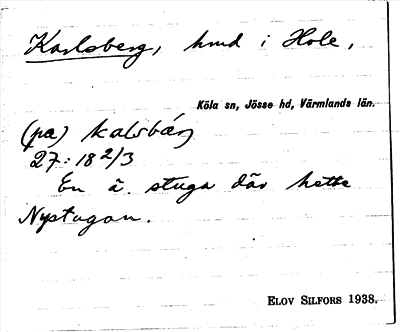 Karlsberg, hmd i Hole,
Köla sn, Jösse hd, Värmlands län.
(pa) kalsbárj
27:18 2/3
En ä. stuga där hette
Nystugan.
ELOV SILFORS 1938.